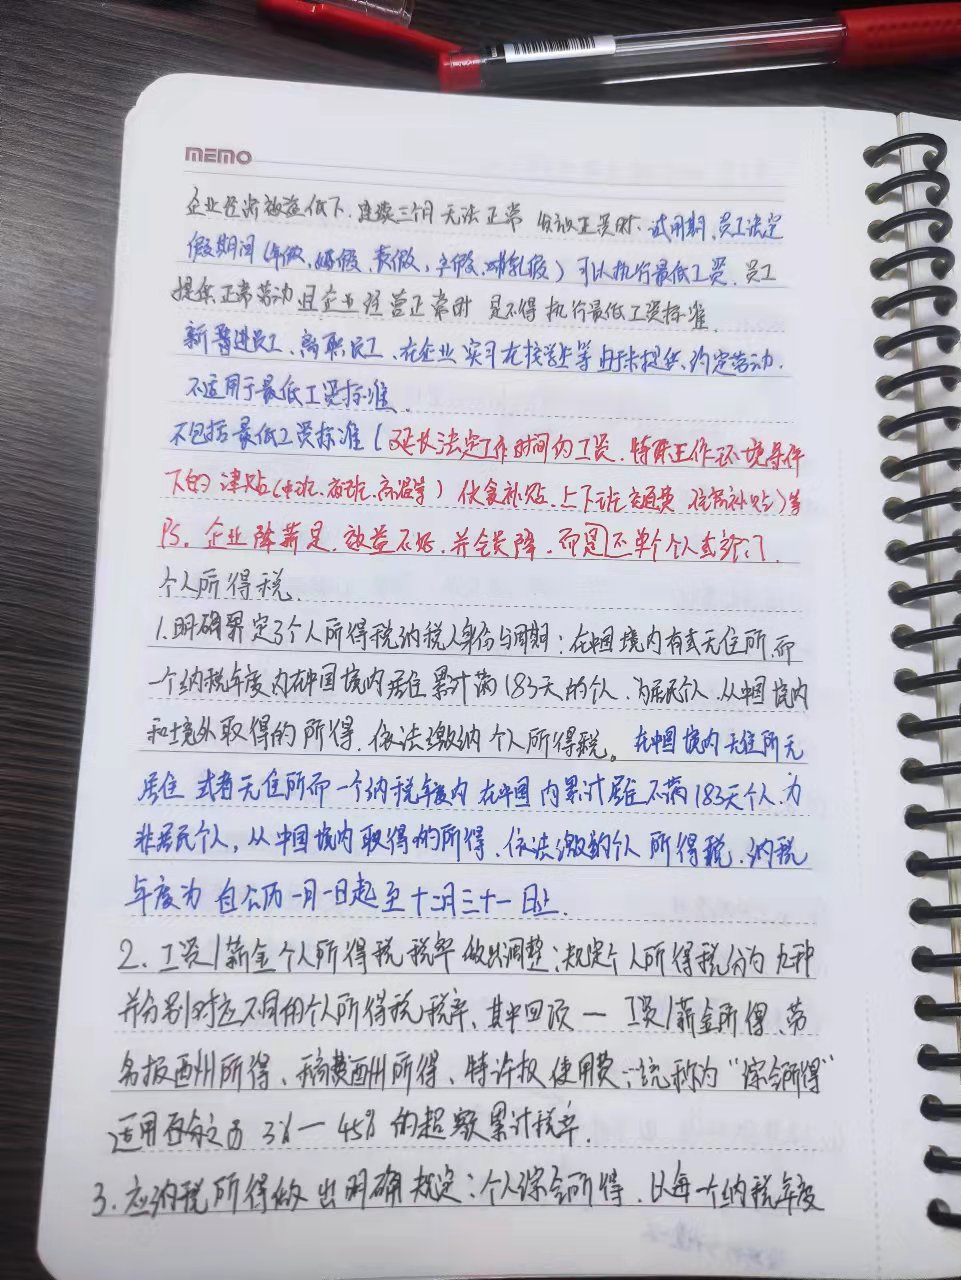 MEMO
企业经济效益低下、连续三个月无法正常发放工资时、试用期、员工法定
假期间(年假、婚假、丧假、产假、哺乳假)可以执行最低工资、员工
提供正常劳动且企业经营正常时 是不得执行最低工资标准.
新晋进员工、离职员工、在企业实习在校学生等由于未提供约定劳动.
不适用于最低工资标准.
不包括最低工资标准(延长法定工作时间的工资.特殊工作环境条件
下的津贴(中班、夜班、高温等)伙食补贴、上下班交通费 住房补贴)等
PS. 企业降薪是.效益不好.并全员降.而是不单个个人或部门.
个人所得税.
1.明确界定了个人所得税纳税人身份与周期:在中国境内有或无住所而
一个纳税年度内在中国境内居住累计满183天的个人.为居民个人.从中国境内
和境外取得的所得.依法缴纳个人所得税。在中国境内无住所无
居住 或者无住所而一个纳税年度内 在中国内累计居住不满183天个人.为
非居民个人,从中国境内取得的所得.依法缴纳个人所得税.纳税
年度为 自公历一月一日起至十二月三十一日止.
2.工资/薪金个人所得税税率做出调整:规定个人所得税分为九种
并分别对应不同的个人所得税税率、其中四项一 工资/薪金所得、劳
务报酬所得、稿费酬所得、特许权使用费:统称为“综合所得”
适用百分之百 3%一45%的超额累计税率.
3.应纳税所得做出明确规定:个人综合所得.以每一个纳税年度